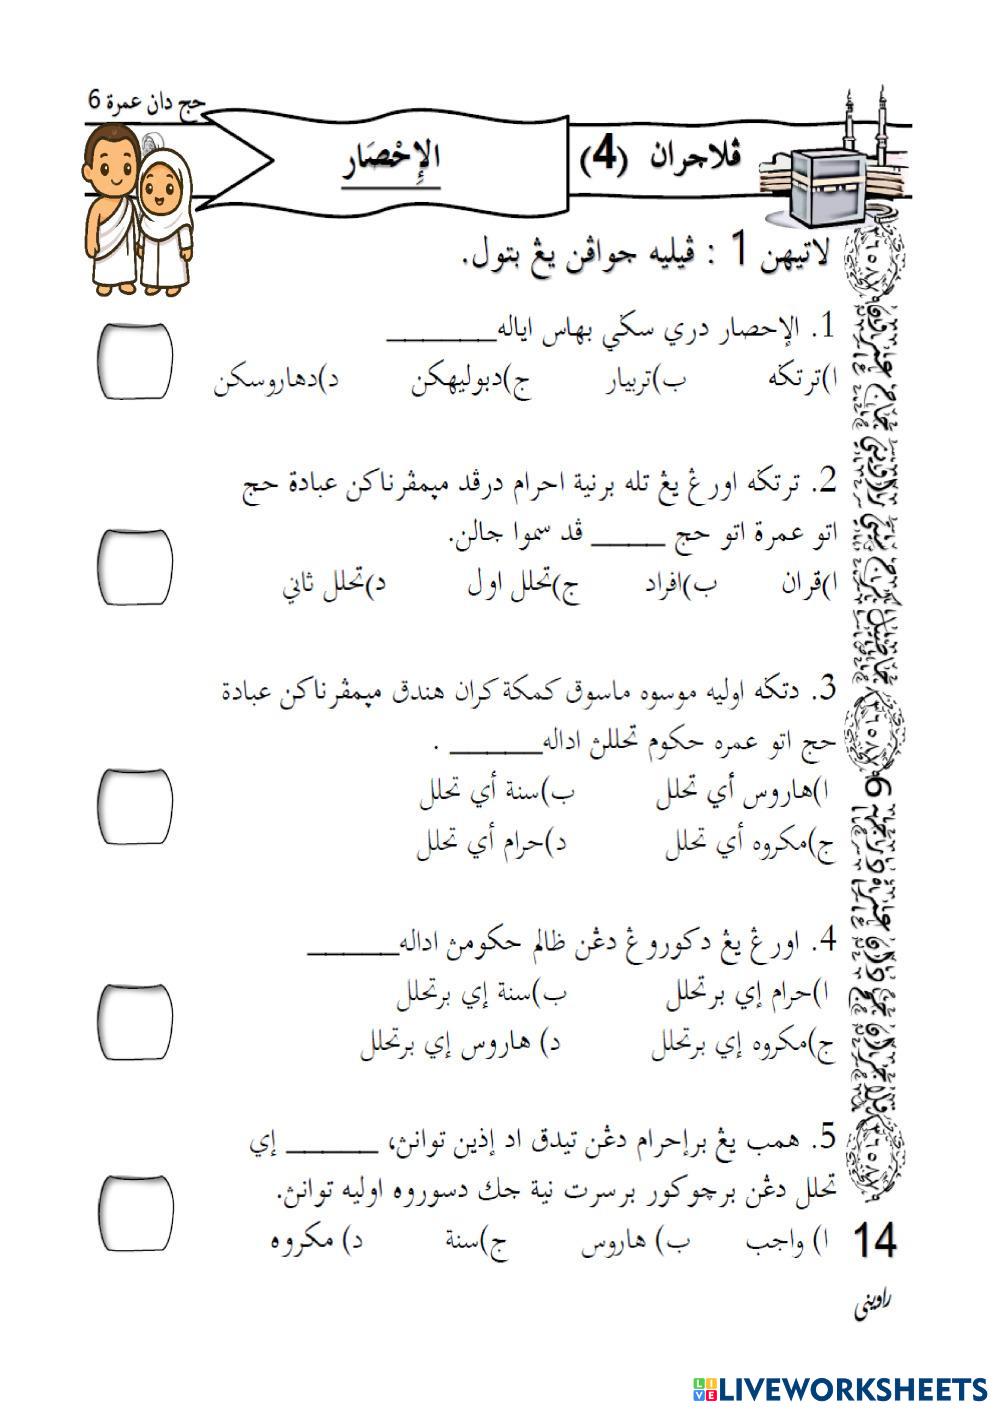 حج دان عمرة 6
ڤلاجران (4)
الإِحْصَار
لاتيهن 1 : ڤيليه جواڤن يڠ بتول.
1. الإحصار دري سݢي بهاس اياله______
ا)ترتݢه ب)تربيار ج)دبوليهکن د)دهاروسکن
2. ترتݢه اورڠ يڠ تله برنية احرام درڤد ميمڤرناکن عبادة حج
اتو عمرة اتو حج ____ ڤد سموا جالن.
ا)قران ب)افراد ج)تحلل اول د)تحلل ثاني
3. دتݢه اوليه موسوه ماسوق کمکة کران هندق ميمڤرناکن عبادة
حج اتو عمره حکوم تحللڽ اداله_____ .
ا)هاروس أي تحلل ب)سنة أي تحلل
ج)مکروه أي تحلل د)حرام أي تحلل
4. اورڠ يڠ دکوروڠ دڠن ظالم حکومڽ اداله_____
ا)حرام إي برتحلل ب)سنة إي برتحلل
ج)مکروه إي برتحلل د) هاروس إي برتحلل
5. همب يڠ برإحرام دڠن تيدق اد إذين توانڽ، _____ إي
تحلل دڠن برچوکور برسرت نية جك دسوروه اوليه توانڽ.
ا) واجب ب) هاروس ج)سنة د) مکروه
14
LIVEWORKSHEETS